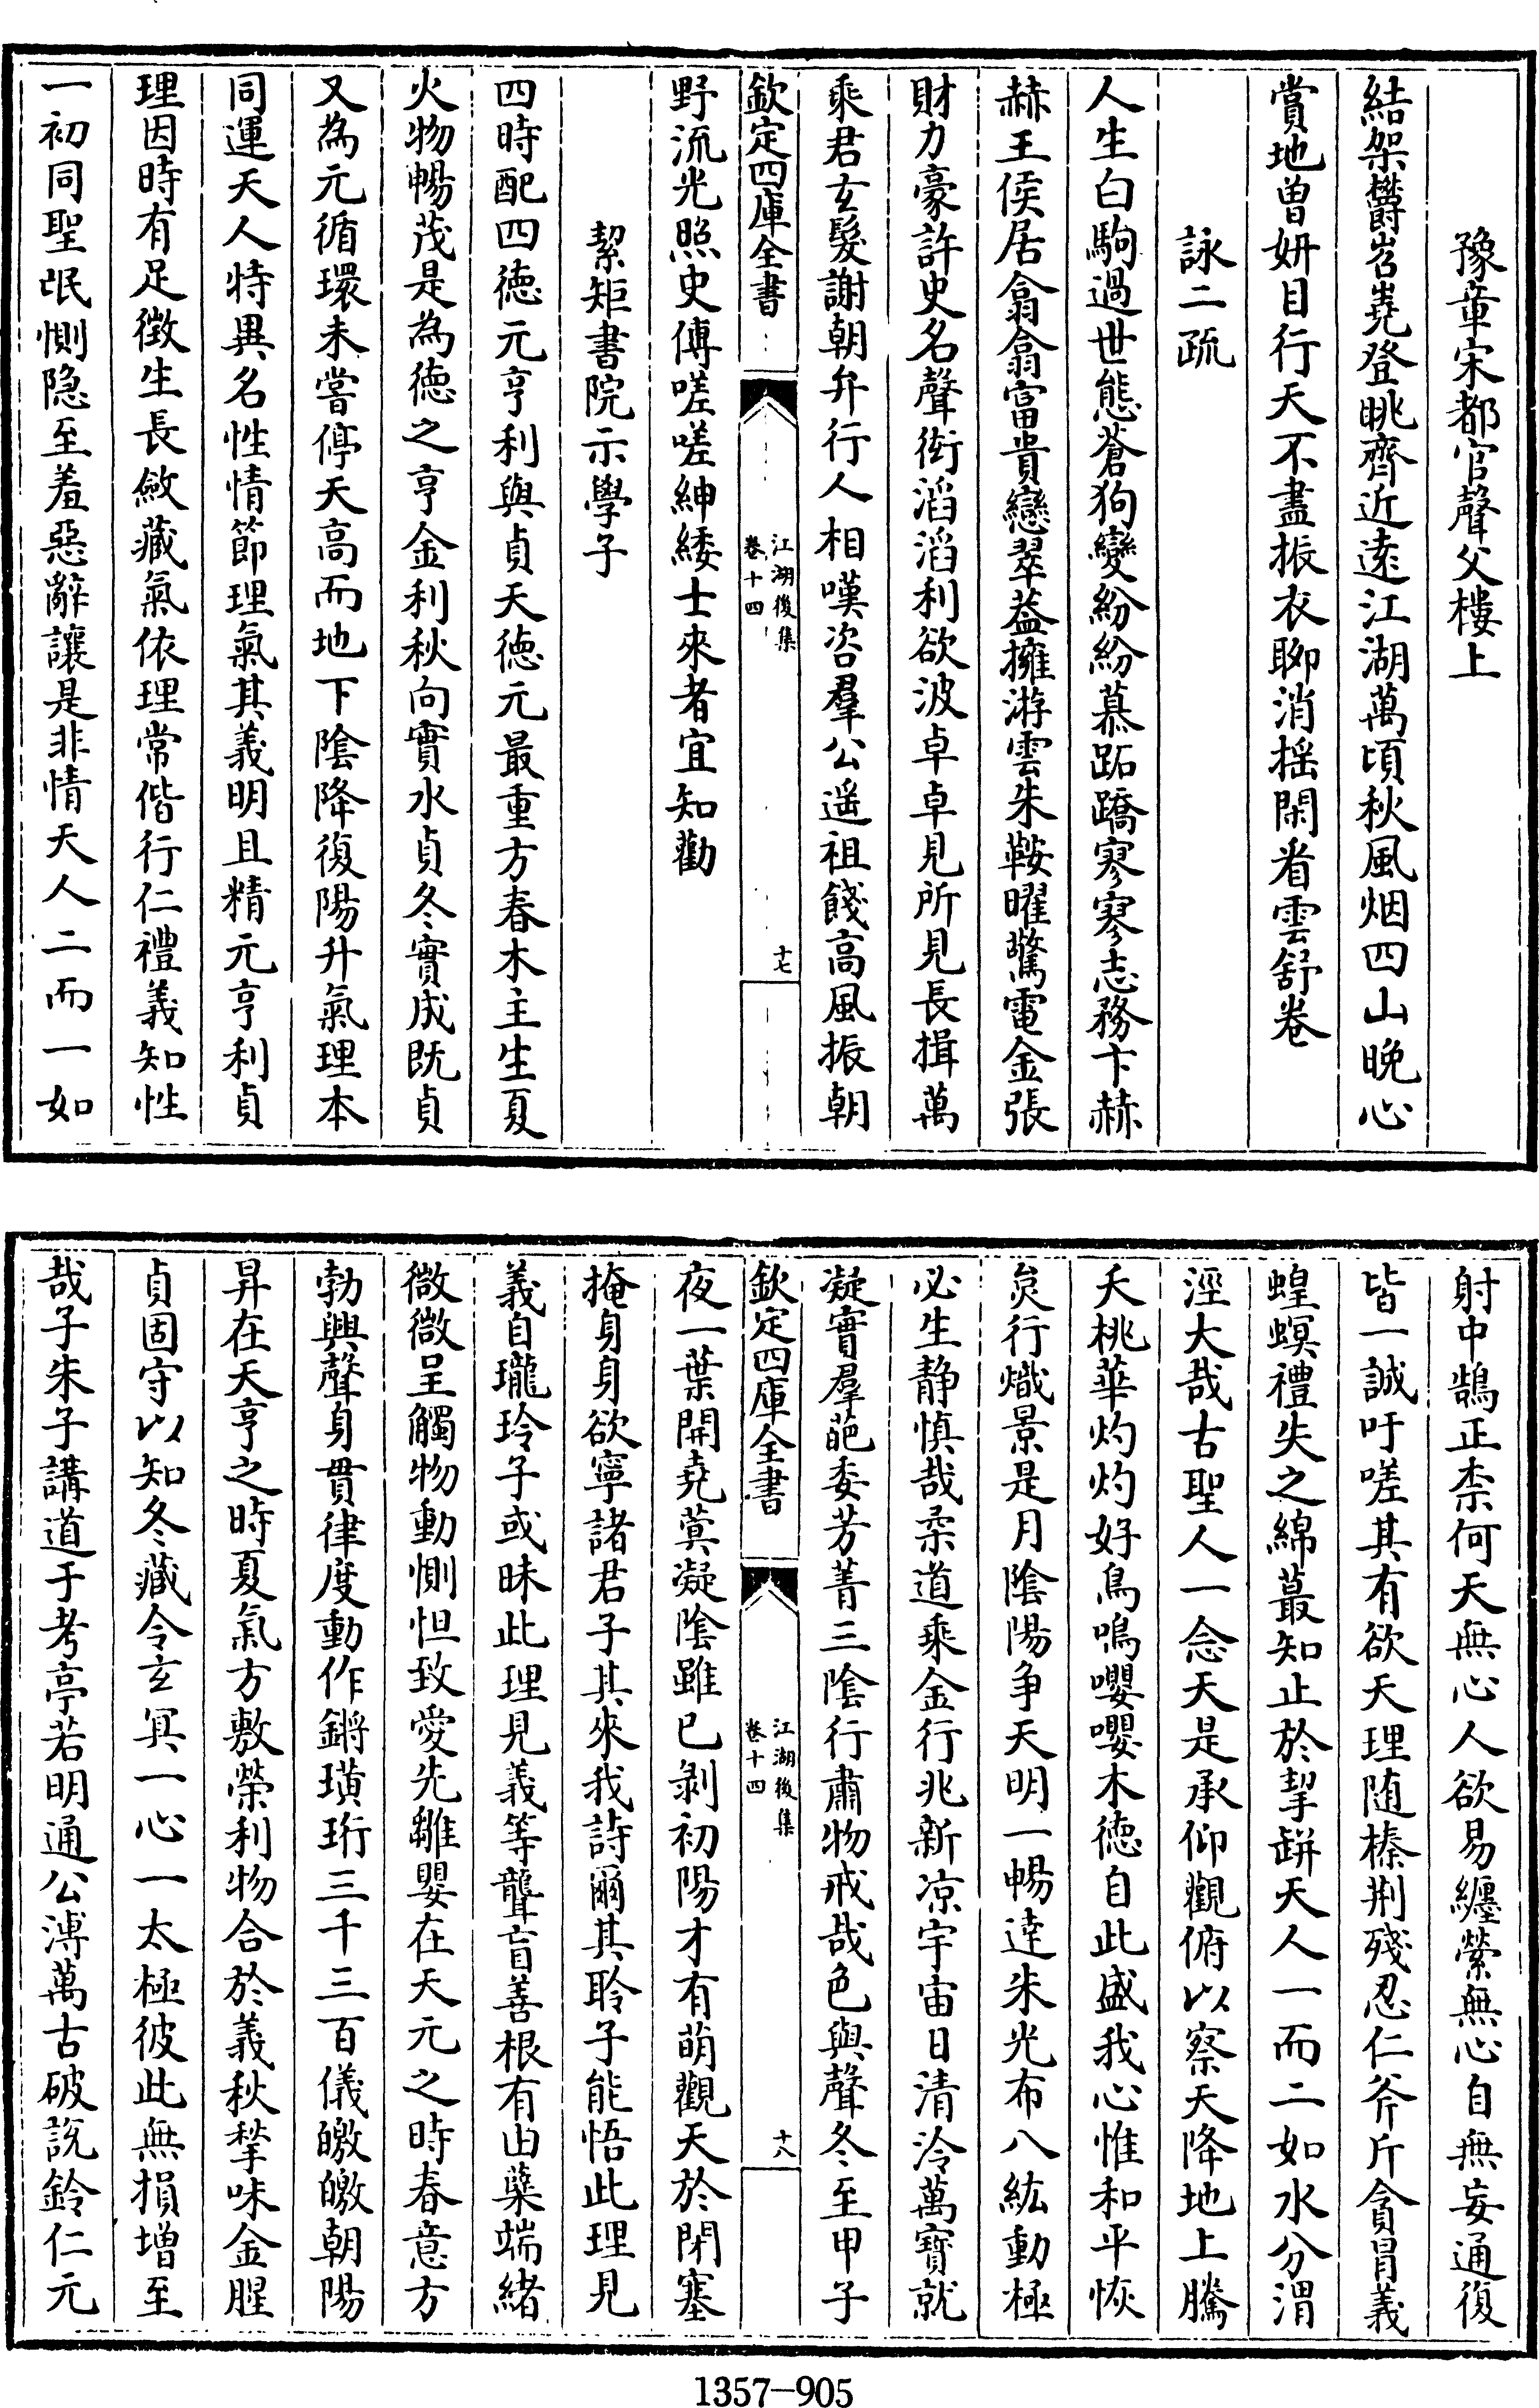 豫章宋都官聲父樓上
結架欝岧嶤登眺齊近遠江湖萬頃秋風烟四山晚心
賞地曽妍目行天不盡振衣聊消摇閑㸔雲舒卷
詠二疏
人生白駒過世態蒼狗變紛紛慕跖蹻寥寥志務卞赫
赫王侯居翕翕富貴戀翠葢擁游雲朱鞍曜驚電金張
財力豪許史名聲衒滔滔利欲波卓卓見所見長揖萬
乘君玄髮謝朝弁行人相嘆咨羣公遥祖餞高風振朝
欽定四庫全書
江湖後集
卷十四
十七
野流光照史傳嗟嗟紳緌士來者宜知勸
絜矩書院示學子
四時配四徳元亨利與貞天徳元最重方春木主生夏
火物暢茂是為徳之亨金利秋向實水貞冬實成既貞
又為元循環未嘗停天高而地下隂降復陽升氣理本
同運天人特異名性情節理氣其義明且精元亨利貞
理因時有足徴生長斂藏氣依理常偕行仁禮義知性
一初同聖氓惻隠至羞惡辭讓是非情天人二而一如
射中鵠正柰何天無心人欲易纏縈無心自無妄通復
皆一誠吁嗟其有欲天理随榛荆殘忍仁斧斤貪冐義
蝗螟禮失之綿蕞知止於挈缾天人一而二如水分渭
涇大哉古聖人一念天是承仰觀俯以察天降地上騰
夭桃華灼灼好鳥鳴嚶嚶木徳自此盛我心惟和平恢
炱行熾景是月隂陽争天明一暢逹朱光布八紘動極
必生静慎哉柔道乘金行兆新凉宇宙日清泠萬寶就
凝實羣葩委芳菁三隂行肅物戒哉色與聲冬至甲子
欽定四庫全書
江湖後集
卷十四
十八
夜一葉開堯蓂凝隂雖已剝初陽才有萌觀天於閉塞
掩身身欲寧諸君子其來我詩爾其聆子能悟此理見
義自瓏玲子或昧此理見義等聾盲善根有由蘖端緒
微微呈觸物動惻怛致愛先雛嬰在天元之時春意方
勃興聲身貫律度動作鏘璜珩三千三百儀皦皦朝陽
昇在天亨之時夏氣方敷榮利物合於義秋揫味金腥
貞固守以知冬藏令玄㝠一心一太極彼此無損增至
哉子朱子講道于考亭若明通公溥萬古破説鈴仁元
1357-905